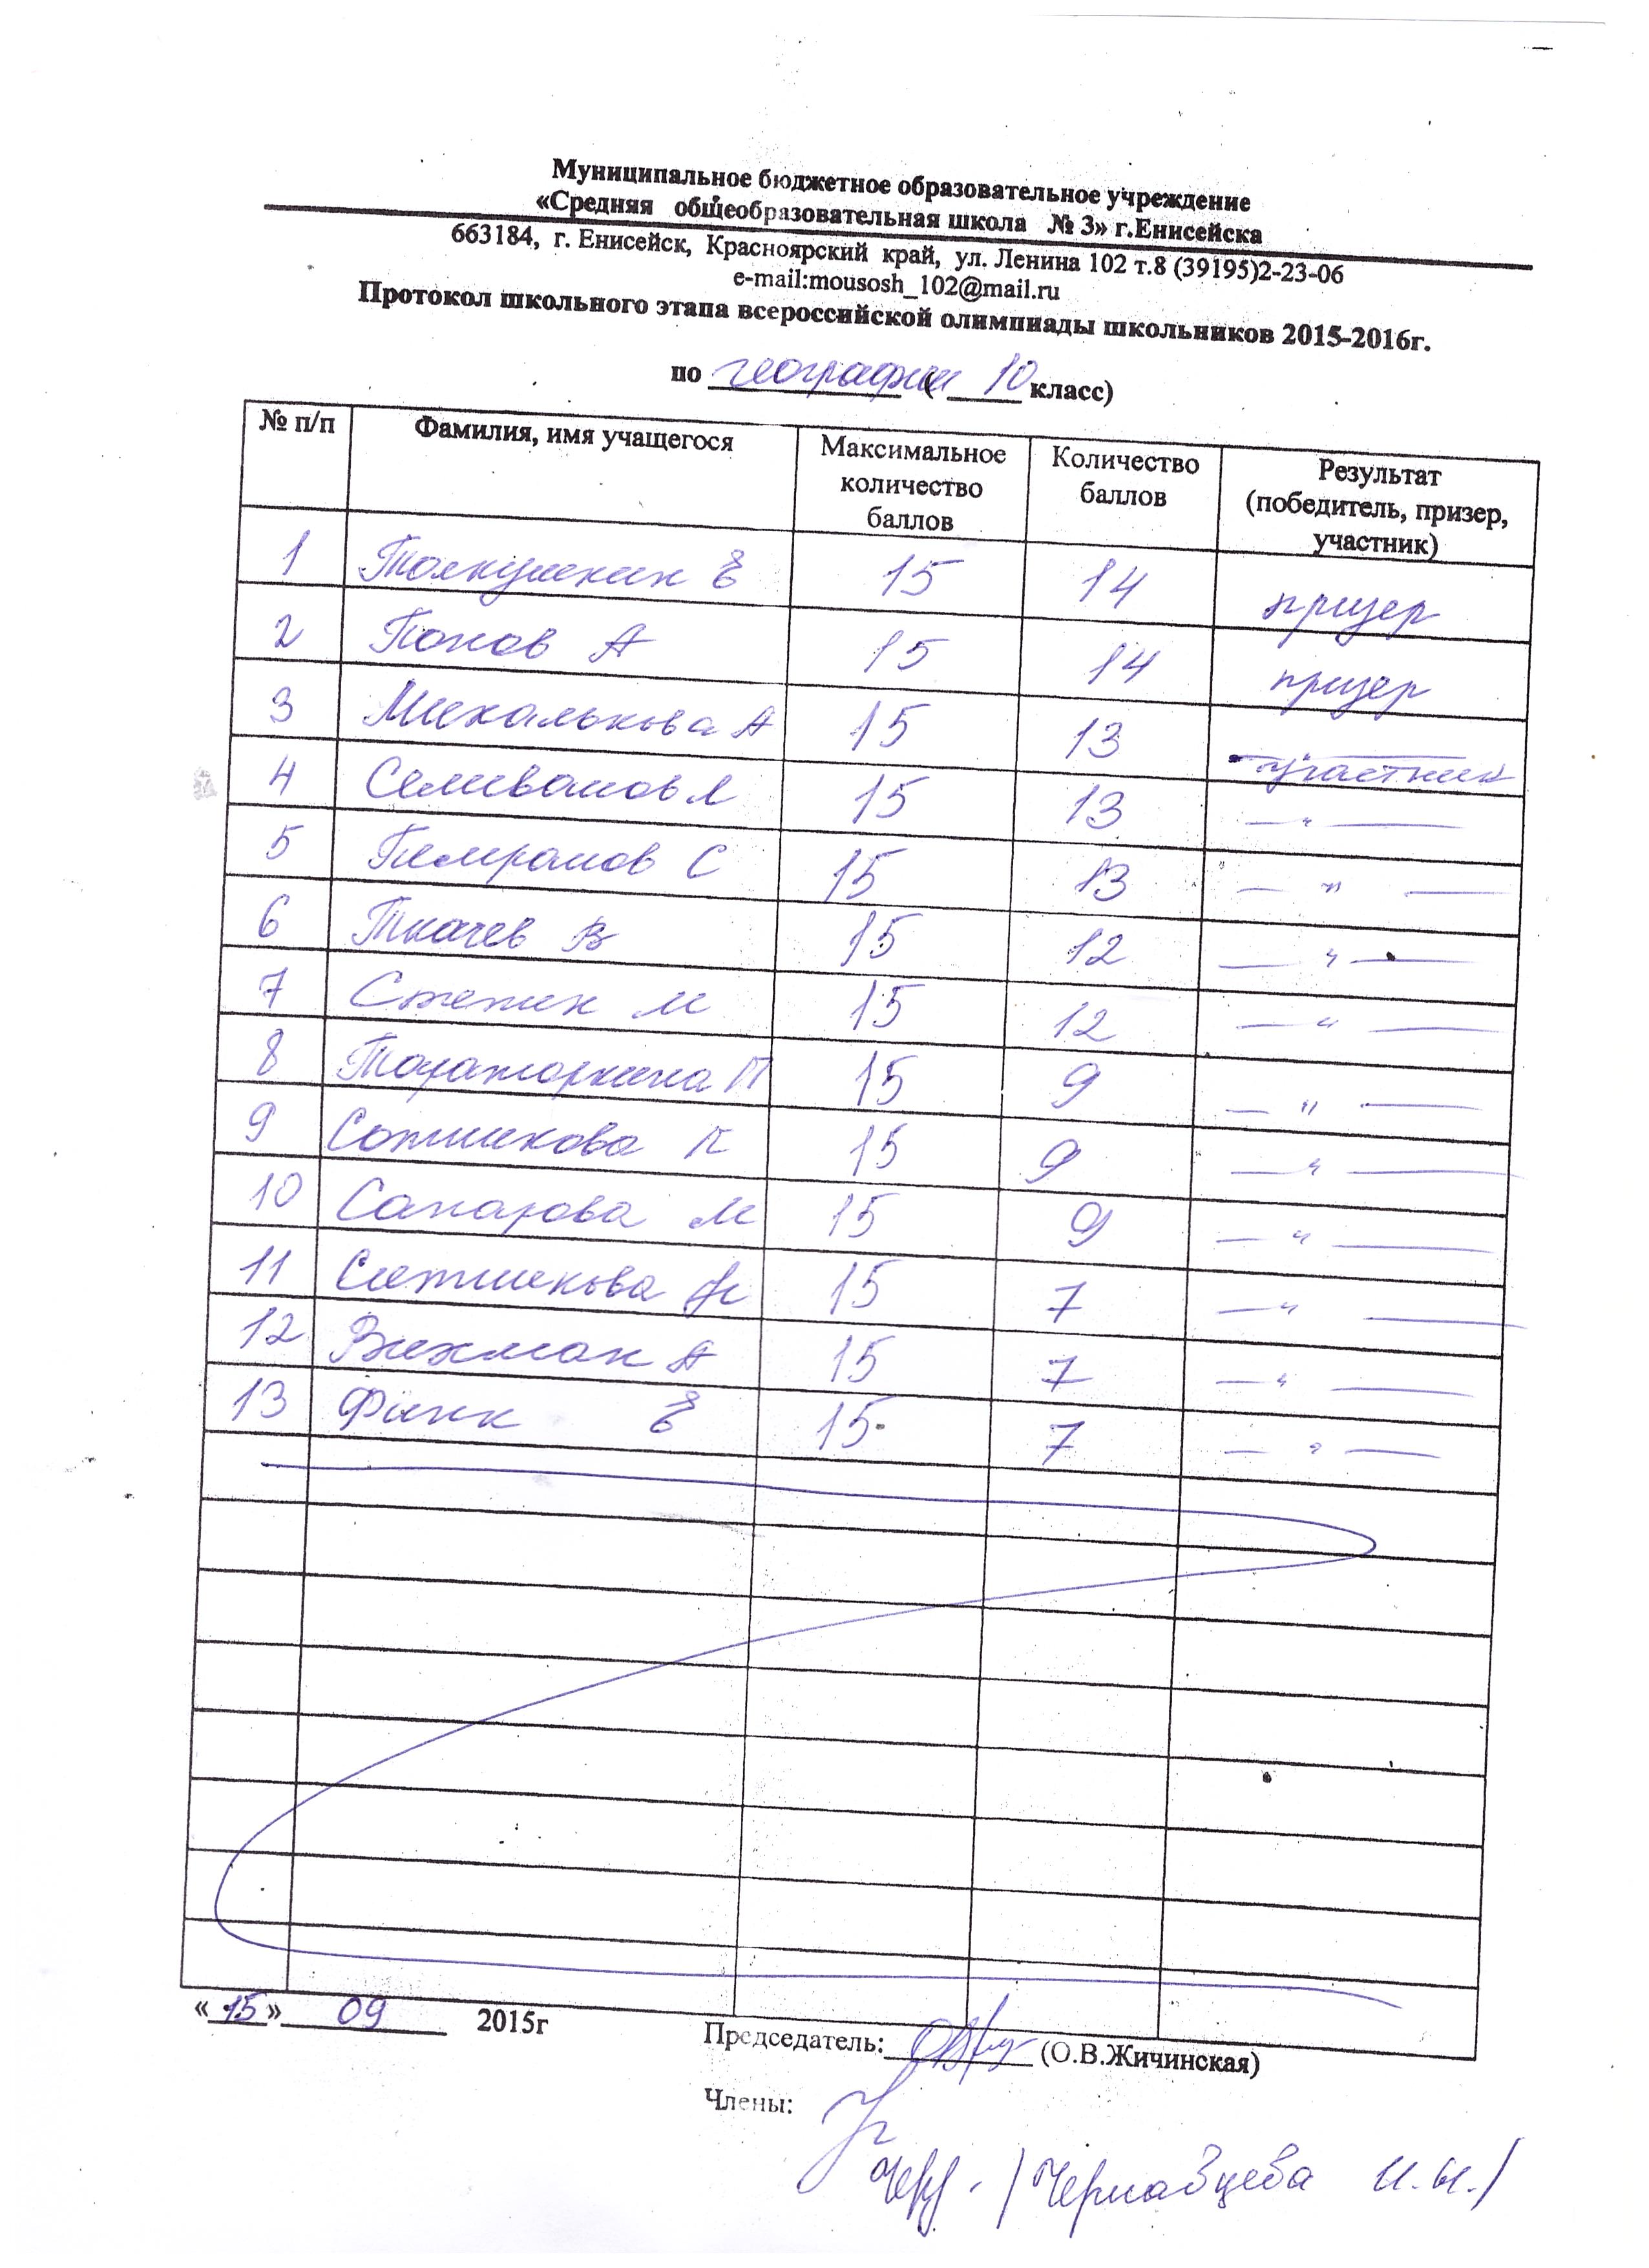 Муниципальное бюджетное образовательное учреждение
«Средняя общеобразовательная школа № 3» г.Енисейска
663184, г. Енисейск, Красноярский край, ул. Ленина 102 т.8 (39195)2-23-06
e-mail:mousosh_102@mail.ru
Протокол школьного этапа всероссийской олимпиады школьников 2015-2016г.
по географии ( 10 класс)
№ п/п Фамилия, имя учащегося Максимальное количество баллов Количество баллов Результат (победитель, призер, участник)
1 Толкушкин Е 15 14 призер
2 Попов А 15 14 призер
3 Михалькова А 15 13 участник
4 Селиванов 15 13 — " —
5 С 15 13 — " —
6 Ткачев В 15 12 — " —
7 М 15 12 — " —
8 Тараторкина П 15 9 — " —
9 Сотникова К 15 9 — " —
10 Сапарова М 15 9 — " —
11 Ситникова 15 7 — " —
12 Вихман А 15 7 — " —
13 Финк Е 15 7 — " —
«15» 09 2015г
Председатель: (О.В.Жичинская)
Члены:
/Чернавцева И.И./